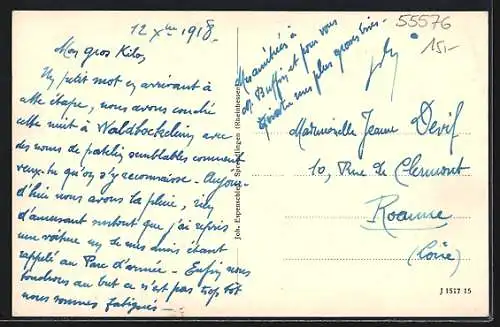 12 Xbre 1918.
Mon gros Kiko,
Un petit mot en arrivant à
cette étape, nous avons couché
cette nuit à Waldböckelheim avec
des noms de patelin semblables comment
veux-tu qu'on s'y reconnaisse. Aujour-
d'hui nous avons la pluie, rien
d'amusant surtout que j'ai repris
une voiture un de mes amis étant
rappelé au Parc d'armée - Enfin nous
touchons au but ce n'est pas trop tôt
nous sommes fatigués -
Mes amitiés à
M. Buffin et pour vous
mes plus grosses bises -
Joh. Espenschied, Sprendlingen (Rheinhessen)
55576
15,-
Mademoiselle Jeanne Devif
10, Rue de Clermont
Roanne
(Loire)
J 1517 15